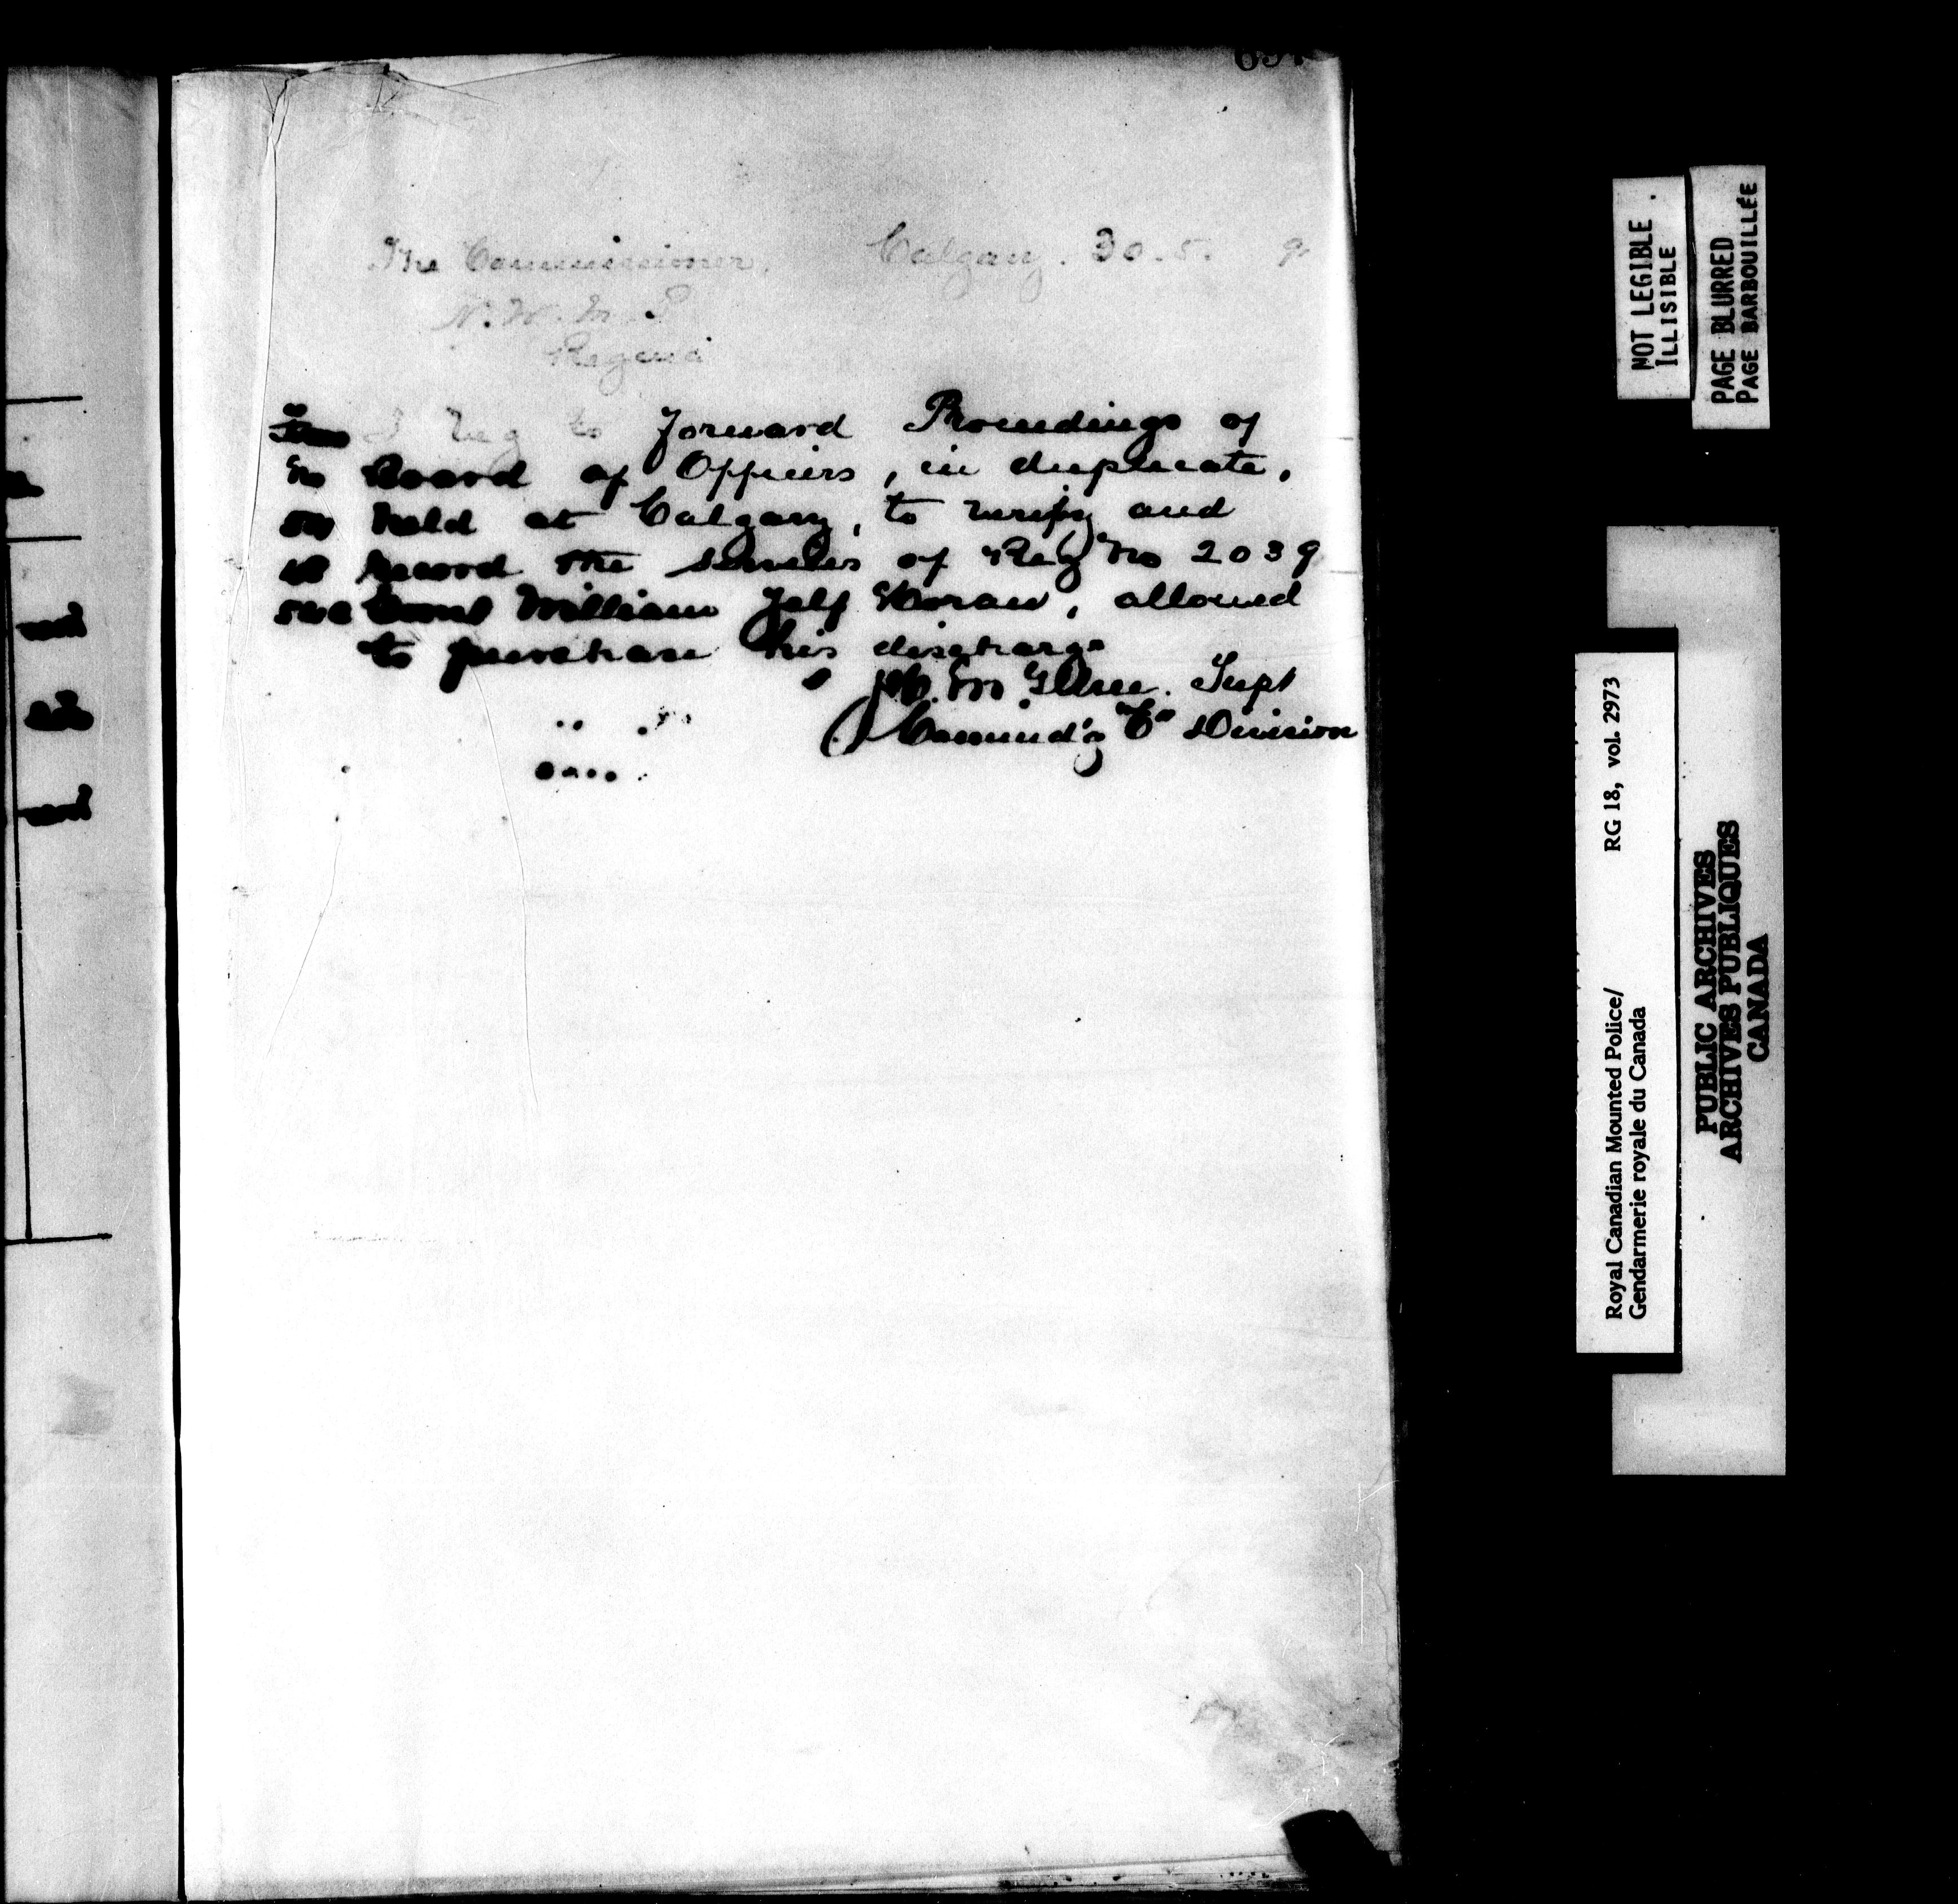 The Commissioner, Calgary. 30.5. 9
N.W.M.P
Regina
I beg to forward Proceedings of
Board of Officers, in duplicate,
held at Calgary, to verify and
record the services of Reg No 2039
William Jelf Moran, allowed
to purchase his discharge
Supt
Commd'g "E" Division
NOT LEGIBLE
ILLISIBLE
PAGE BLURRED
PAGE BARBOUILLÉE
Royal Canadian Mounted Police/ RG 18, vol. 2973
Gendarmerie royale du Canada
PUBLIC ARCHIVES
ARCHIVES PUBLIQUES
CANADA